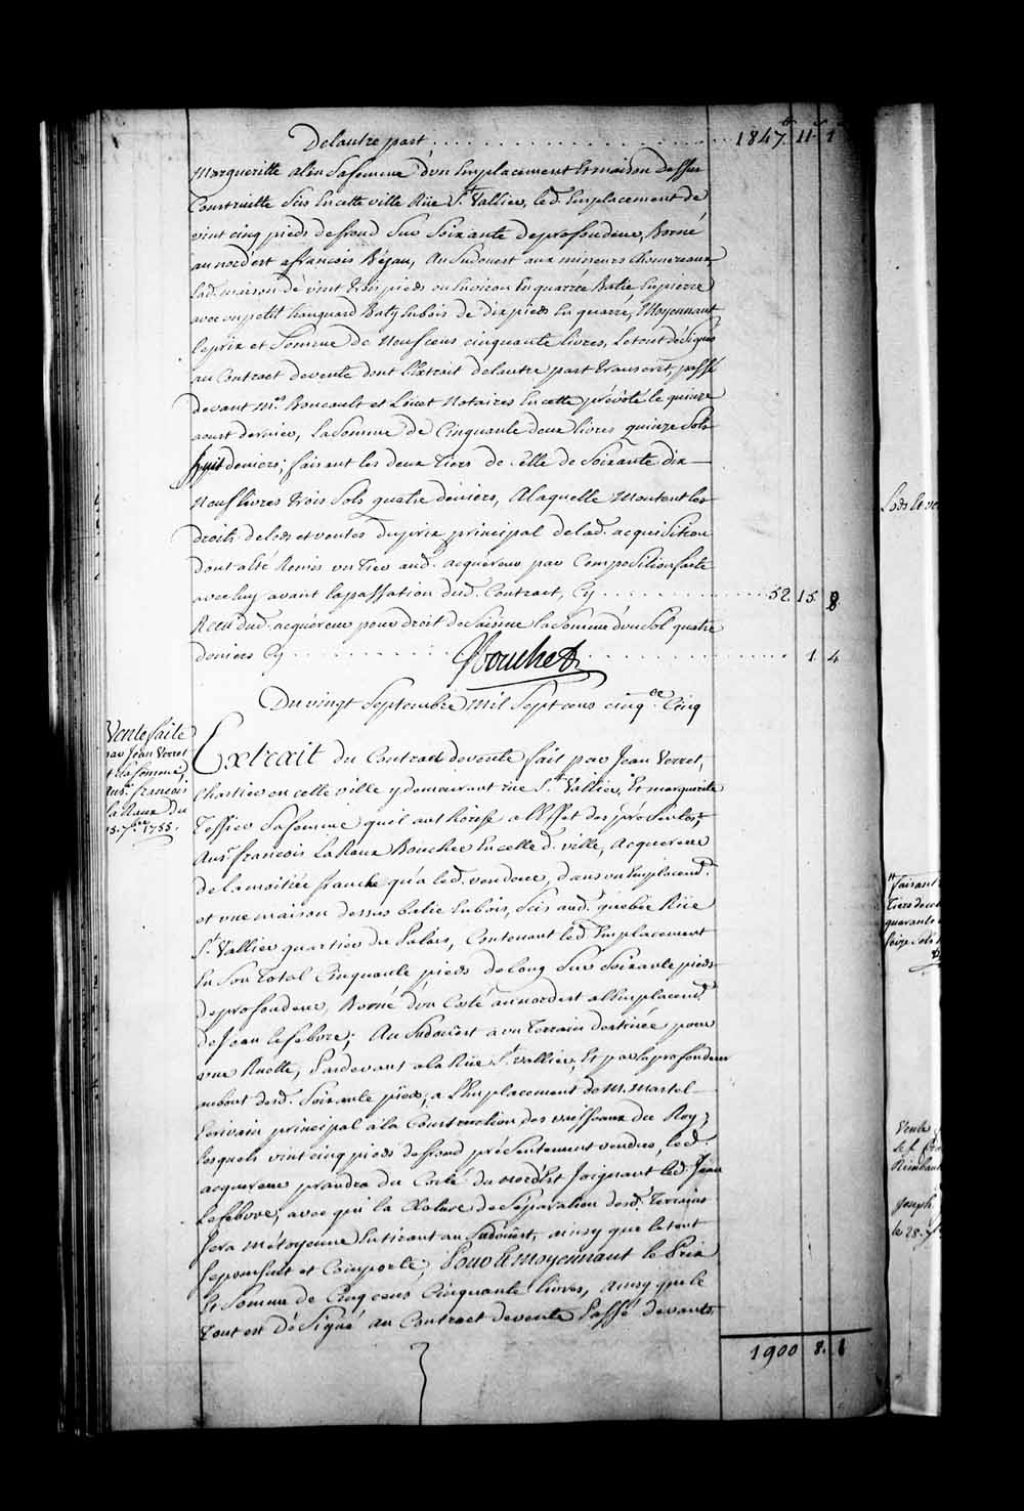 Delautre part, . . . . . . . . . . 1847.tt 11.s 1
Margueritte alin Safemme d'un Emplacement Et maison dessus
Construitte Sise En cette ville Rüe St. Vallier, led. Emplacement de
vint cinq pieds defrond Sur Soixante deprofondeur, Borné
au nord'est afrancois Béjau, Au Sudouest aux mineurs
Lad. maison de vint trois pieds ou Environ En quarrée Batie En pierre
avec un petit hangard Baty Enbois de dix pieds En quarré, Moyennant
leprix et Somme de Neuf cens cinquante livres, Letout désigné
au Contract devente dont L'Extrait delautre part transcrit, passé
devant Mes. Boucault et Notaires En cette prévôté le quinze
aoust dernier, LaSomme de Cinquante deux livres quinze Sols
huit deniers; faisant les deux Tiers de Celle de Soixante dix
Neuf livres trois Sols quatre deniers, Alaquelle Montent les
droits delods et ventes duprix principal delad. acquisition
dont aEté Remis un Tier aud. acquereur par Composition faite
avec luy avant lapassation dud. Contract, Cy . . . . . . 52. 15 8
Reçu dud. acquéreur pour droit deSaisine laSomme d'un Sol quatre
deniers Cy . . . . . . . . . . 1. 4
Du vingt Septembre Mil Sept cens cinqte. Cinq
Vente faite
par Jean Verret
Et Sa femme,
au Sr. francois
la Raux Du
7bre 1755.
Extrait du Contract devente fait par Jean Verret,
Chartier en cette ville y demeurant rue St. Vallier, Et marguerite
Tessier Safemme quil authorise alEffet des présentes;
Au Sr. francois LaRaux Boucher En celle d. ville, Acquereur
de la moitiée franche qu'a led. vendeur, dans un Emplacemt.
et une maison dessus batie Enbois, Scis aud. quebec Rüe
St. Vallier quartier du Palais, Contenant led. Emplacement
En Son Total Cinquante pieds delong Sur Soixante pieds
deprofondeur, Borné d'un Costé au nordest alEmplacemt.
de Jean lefebvre; Au Sudoüest a un Terrain destinée pour
une Ruelle, Pardevant a la Rüe St. vallier, Et par la profondeur
aubout desd. Soixante pieds, a l'Emplacement de M. Martel
Ecrivain principal à la Construction des vaisseaux du Roy;
lesquels vint cinq pieds defrond présentement vendus, led.
acquereur prendra du Costé du nord'Est Joignant led. Jean
Lefebvre, avec qui la Cloture de Séparation desd. Terrains
Sera Mitoyenne En tirant au Sudoüest, ainsy que letout
Sepoursuit et Comporte, Pour Et moyennant le Prix
Et Somme de Cinq cens Cinquante livres, ainsy que le
Tout est Désigné au Contract devente Passé devant
1900 8. 1
Lods Et ve
faisant
tiers de
quarante
Seize Sols
Vente
Joseph
le 28.